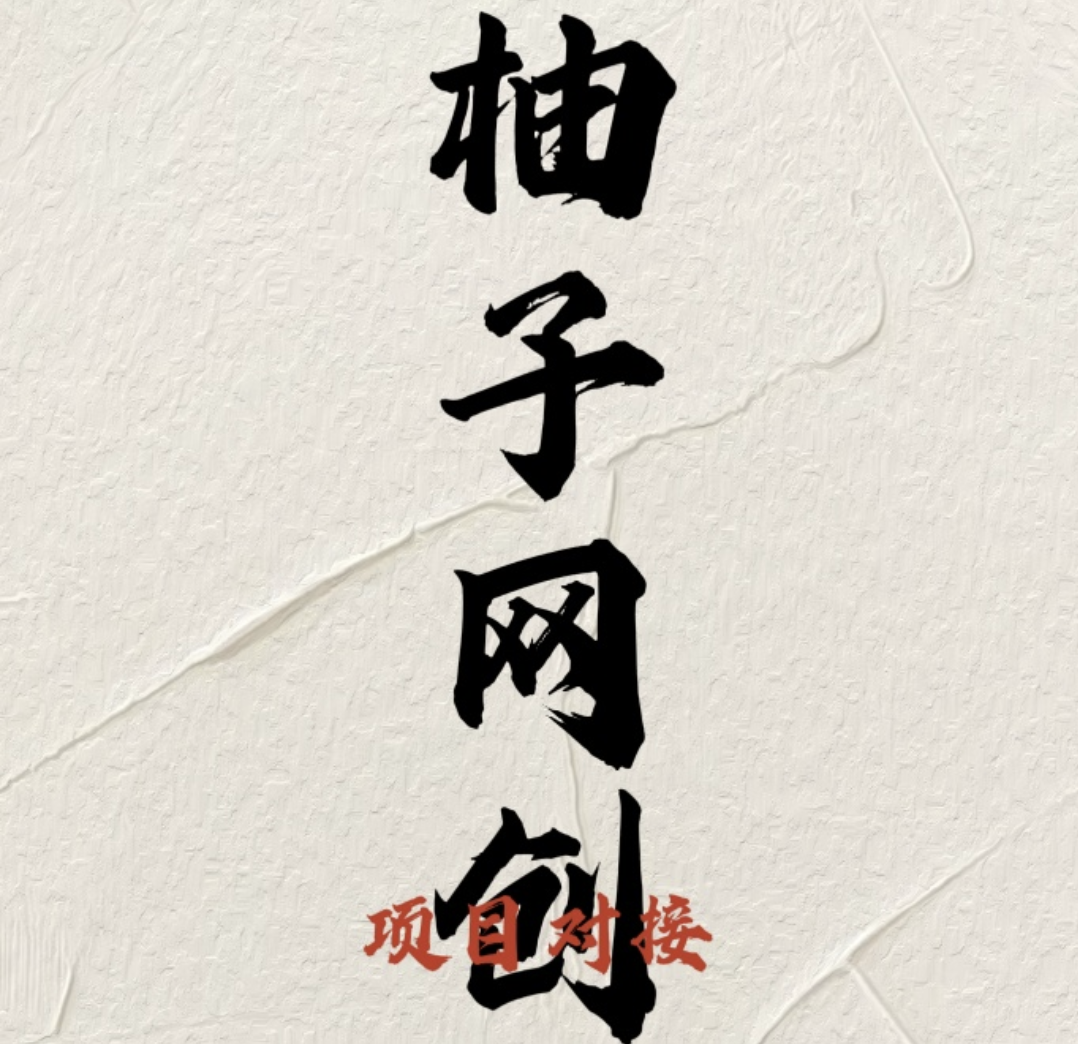 柚子网创
项目对接